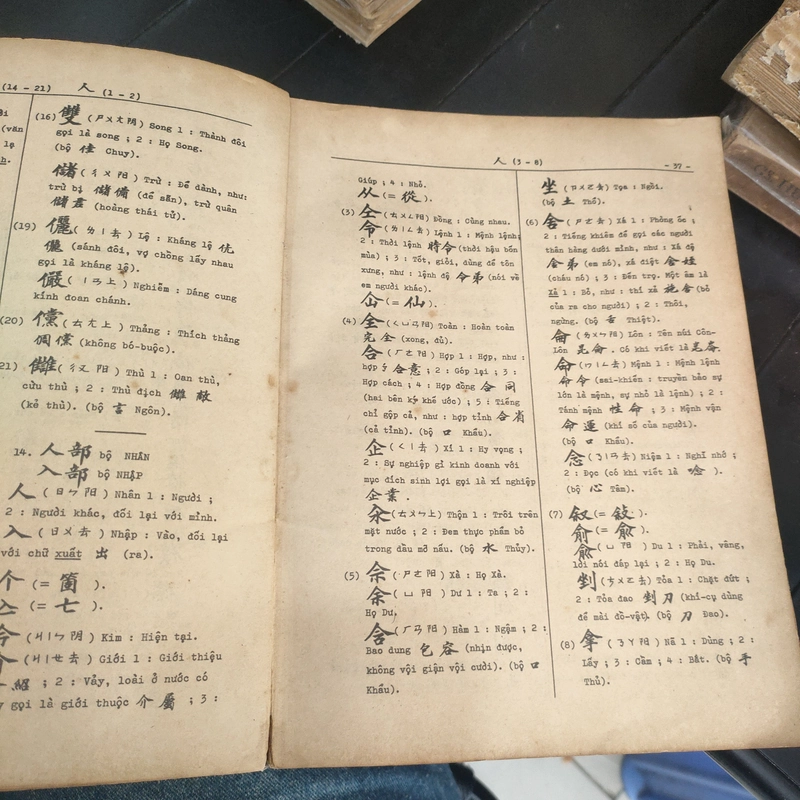 (14 - 21) 人 (1 - 2)
(văn
lạ
(16) 雙 (ㄕㄨㄤ阴) Song 1 : Thành đôi
gọi là song ; 2 : Họ Song.
(bộ 隹 Chuy).
儲 (ㄔㄨ阳) Trừ : Để dành, như:
trừ bị 儲備 (để sẵn), trừ quân
儲君 (hoàng thái tử).
(19) 儷 (ㄌㄧ去) Lệ : Kháng lệ 伉
儷 (sánh đôi, vợ chồng lấy nhau
gọi là kháng lệ).
儼 (ㄧㄢ上) Nghiễm : Dáng cung
kính đoan chánh.
(20) 儻 (ㄊㄤ上) Thảng : Thích thảng
倜儻 (không bó-buộc).
21) 讎 (ㄔㄡ阳) Thù 1 : Oan thù,
cừu thù ; 2 : Thù địch 讎敵
(kẻ thù). (bộ 言 Ngôn).
14. 人部 bộ NHÂN
入部 bộ NHẬP
人 (ㄖㄣ阳) Nhân 1 : Người ;
2 : Người khác, đối lại với mình.
入 (ㄖㄨ去) Nhập : Vào, đối lại
với chữ xuất 出 (ra).
个 (= 箇 ).
亼 (= 七 ).
今 (ㄐㄧㄣ阴) Kim : Hiện tại.
介 (ㄐㄧㄝ去) Giới 1 : Giới thiệu
介紹 ; 2 : Vảy, loài ở nước có
gọi là giới thuộc 介屬 ; 3 :
人 (3 - 8) - 37 -
Giúp ; 4 : Nhỏ.
从 (= 從 ).
(3) 仝 (ㄊㄨㄥ阳) Đồng : Cùng nhau.
令 (ㄌㄧㄥ去) Lệnh 1 : Mệnh lệnh;
2 : Thời lệnh 時令 (thời hậu bốn
mùa) ; 3 : Tốt, giỏi, dùng để tôn
xưng, như : lệnh đệ 令弟 (nói về
em người khác).
仚 (= 仙 ).
(4) 全 (ㄑㄩㄢ阳) Toàn : Hoàn toàn
完全 (xong, đủ).
合 (ㄏㄜ阳) Hợp 1 : Hợp, như :
hợp ý 合意 ; 2 : Góp lại ; 3 :
Hợp cách ; 4 : Hợp đồng 合同
(hai bên ký khế ước) ; 5 : Tiếng
chỉ gộp cả, như : hợp tỉnh 合省
(cả tỉnh). (bộ 口 Khẩu).
企 (ㄑㄧ去) Xí 1 : Hy vọng ;
2 : Sự nghiệp gì kinh doanh với
mục đích sinh lợi gọi là xí nghiệp
企業 .
汆 (ㄊㄨㄣ上) Thộn 1 : Trôi trên
mặt nước ; 2 : Đem thực phẩm bỏ
trong dầu mỡ nấu. (bộ 水 Thủy).
(5) 佘 (ㄕㄜ阳) Xà : Họ Xà.
余 (ㄩ阳) Dư 1 : Ta ; 2 :
Họ Dư.
含 (ㄏㄢ阳) Hàm 1 : Ngậm ; 2 :
Bao dung 包容 (nhịn được,
không vội giận vội cười). (bộ 口
Khẩu).
坐 (ㄗㄨㄛ去) Tọa : Ngồi.
(bộ 土 Thổ).
(6) 舍 (ㄕㄜ去) Xá 1 : Phòng ốc ;
2 : Tiếng khiêm để gọi các người
thân hàng dưới mình, như : Xá đệ
舍弟 (em nó), xá điệt 舍姪
(cháu nó) ; 3 : Đến trọ. Một âm là
Xả 1 : Bỏ, như : thí xả 施舍 (bỏ
của ra cho người) ; 2 : Thôi,
ngừng. (bộ 舌 Thiệt).
侖 (ㄌㄨㄣ阳) Lôn : Tên núi Côn-
Lôn 昆侖. Có khi viết là 崑崙.
命 (ㄇㄧㄥ去) Mệnh 1 : Mệnh lệnh
命令 (sai-khiến : truyền bảo sự
lớn là mệnh, sự nhỏ là lệnh) ; 2 :
Tánh mệnh 性命 ; 3 : Mệnh vận
命運 (khí số của người).
(bộ 口 Khẩu).
念 (ㄋㄧㄢ去) Niệm 1 : Nghĩ nhớ ;
2 : Đọc (có khi viết là 唸 ).
(bộ 心 Tâm).
(7) 叙 (= 敍 ).
俞 (= 兪 ).
兪 (ㄩ阳) Du 1 : Phải, vâng,
lời nói đáp lại ; 2 : Họ Du.
剉 (ㄘㄨㄛ去) Tỏa 1 : Chặt đứt ;
2 : Tỏa đao 剉刀 (khí-cụ dùng
để mài đồ-vật). (bộ 刀 Đao).
(8) 拿 (ㄋㄚ阳) Nã 1 : Dùng ; 2 :
Lấy ; 3 : Cầm ; 4 : Bắt. (bộ 手
Thủ).